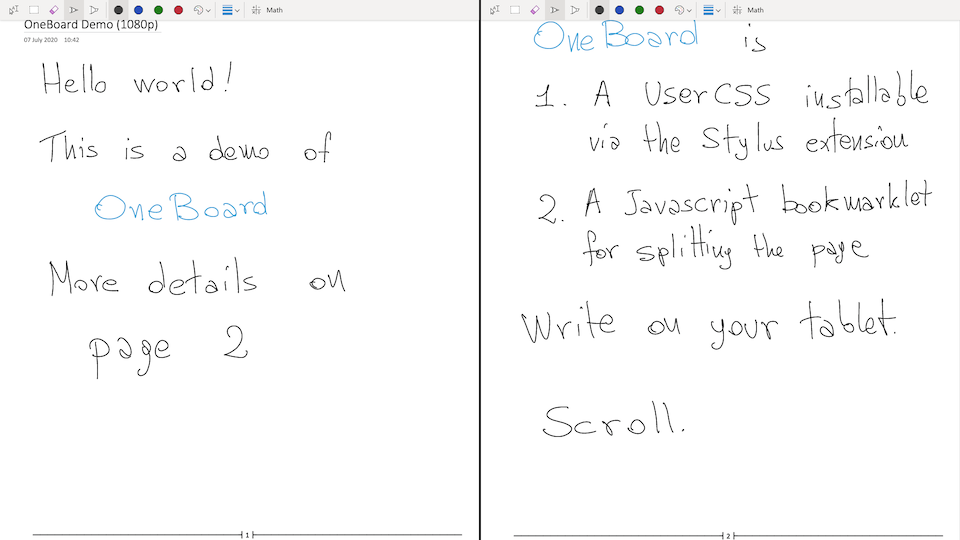 Math
OneBoard Demo (1080p)
07 July 2020 10:42
Hello world!
This is a demo of
OneBoard
More details on
page 2
1
Math
OneBoard is
1. A UserCSS installable
via the Stylus extension
2. A Javascript bookmarklet
for splitting the page
Write on your tablet.
Scroll.
2